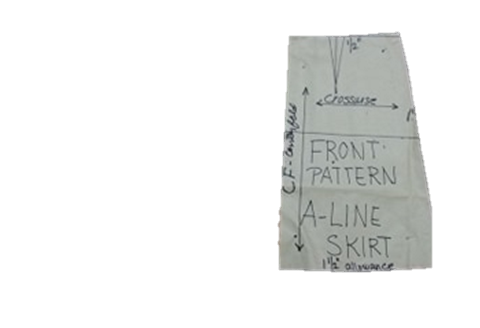 1/2"
Crosswise
CF-centerfold
FRONT
PATTERN
A-LINE
SKIRT
1 1/2" allowance